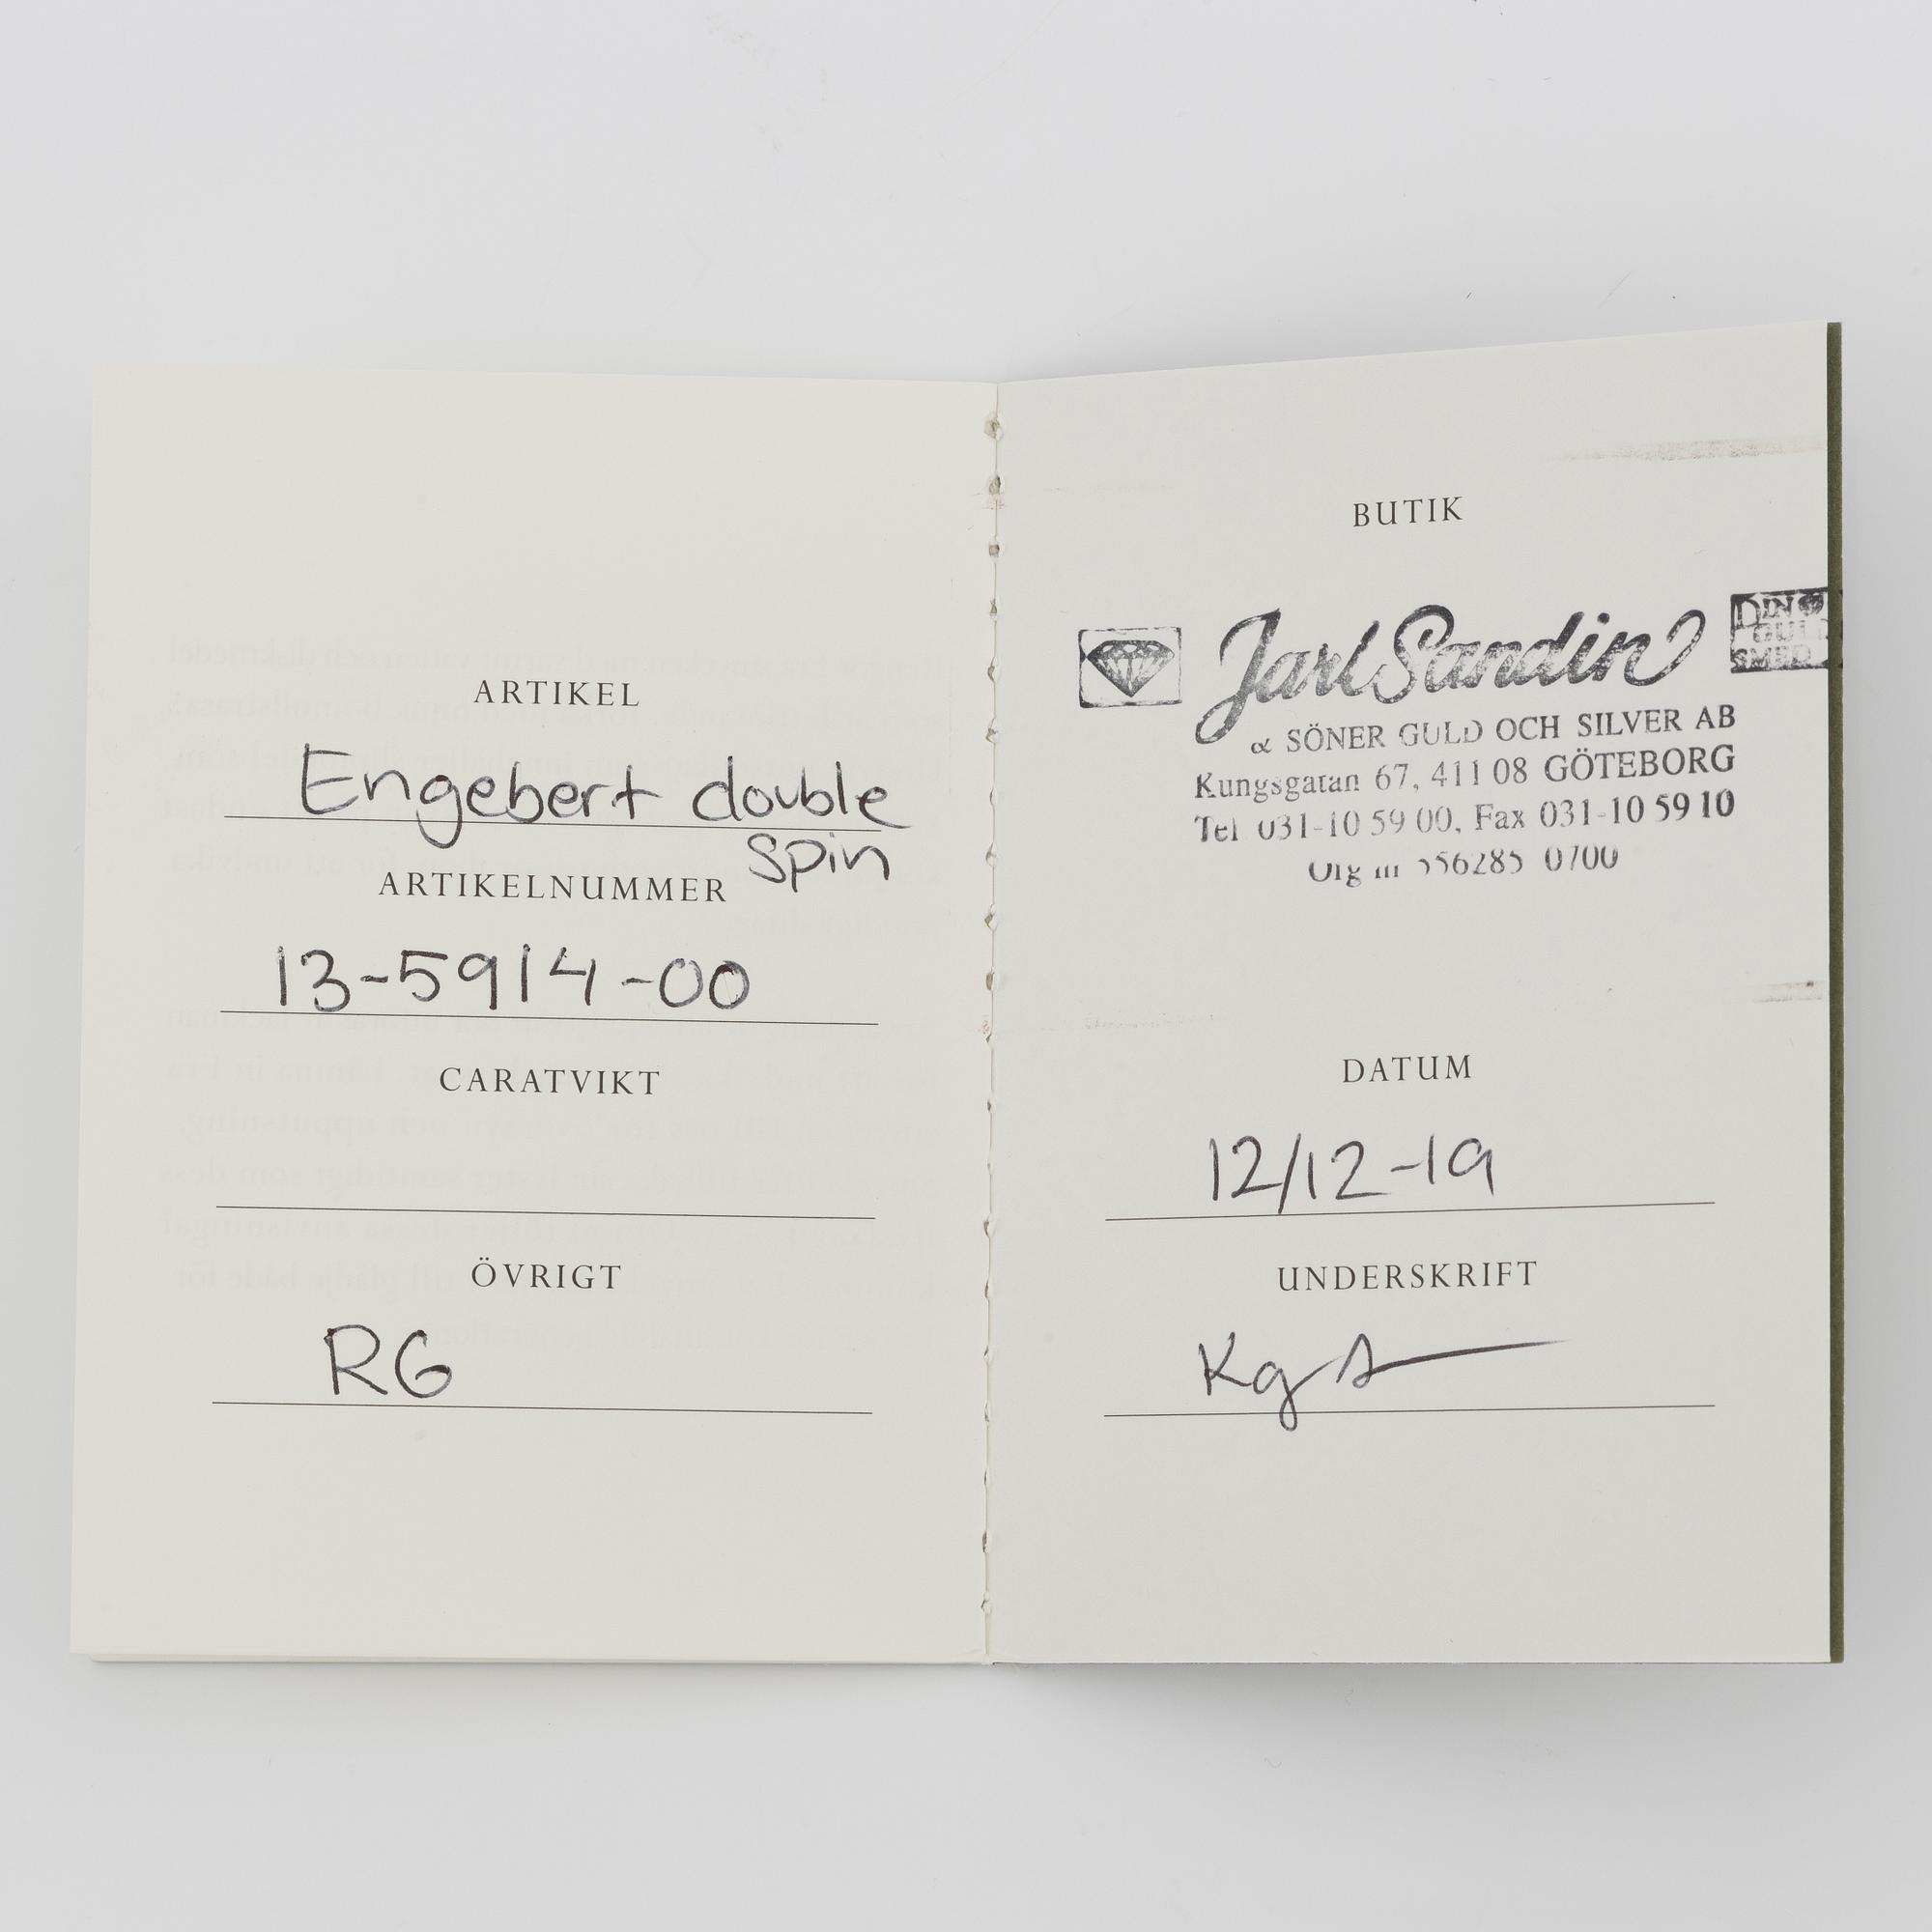 ARTIKEL
Engebert double
spin
ARTIKELNUMMER
13-5914-00
CARATVIKT
ÖVRIGT
RG
BUTIK
Jarl Sandin
DIN
GULD
SMED
& SÖNER GULD OCH SILVER AB
Kungsgatan 67, 411 08 GÖTEBORG
Tel 031-10 59 00, Fax 031-10 59 10
Org nr 556285 0700
DATUM
12/12-19
UNDERSKRIFT